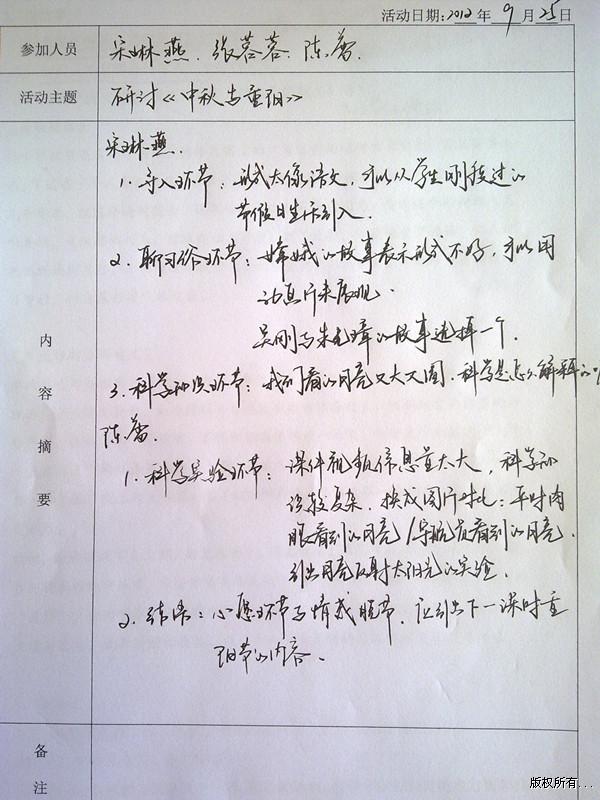 活动日期:2012年 9 月 25 日
参加人员 宋琳燕、张蓉蓉、陈蕾.
活动主题 研讨《中秋与重阳》
内容摘要
宋琳燕.
1. 导入环节：形式太像语文，可以从学生刚接过的
节假日生活引入.
2. 聊习俗环节：嫦娥的故事表示形式不好，可以用
动画片来展现.
吴刚与朱元璋的故事选择一个.
3. 科学知识环节：我们看的月亮又大又圆，科学是怎么解释的？
陈蕾.
1. 科学实验环节：课件视频信息量太大，科学知
识较复杂，换成图片对比：平时肉
眼看到的月亮/望远镜看到的月亮.
引出月亮反射太阳光的实验.
2. 结束：心愿环节与情感脱节，应引出下一课时重
阳节的内容.
备注
版权所有...